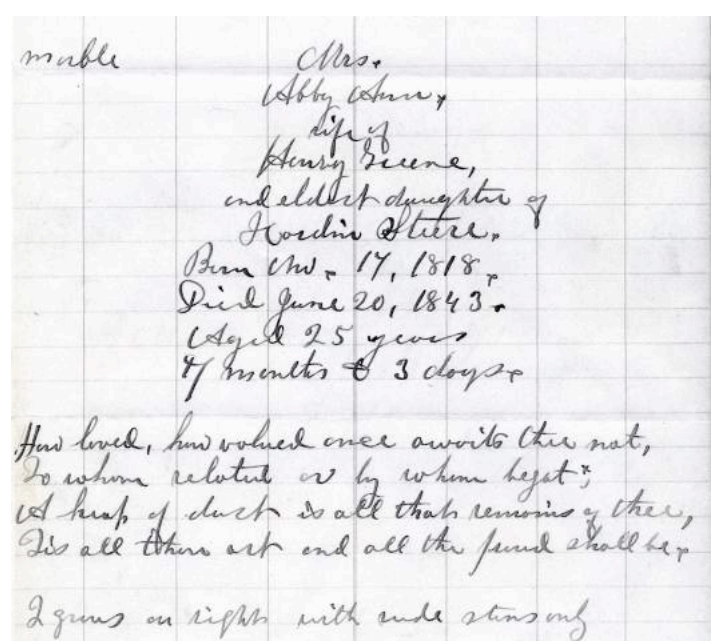 marble Mrs.
Abby Ann,
wife of
Henry Greene,
and eldest daughter of
Steere.
Born 17, 1818.
Died June 20, 1843.
Aged 25 years
4 months & 3 days.
How loved, how valued once avails thee not,
To whom related or by whom begot*;
A heap of dust is all that remains of thee,
Tis all thou art and all the proud shall be.
2 graves on right with rude stons only